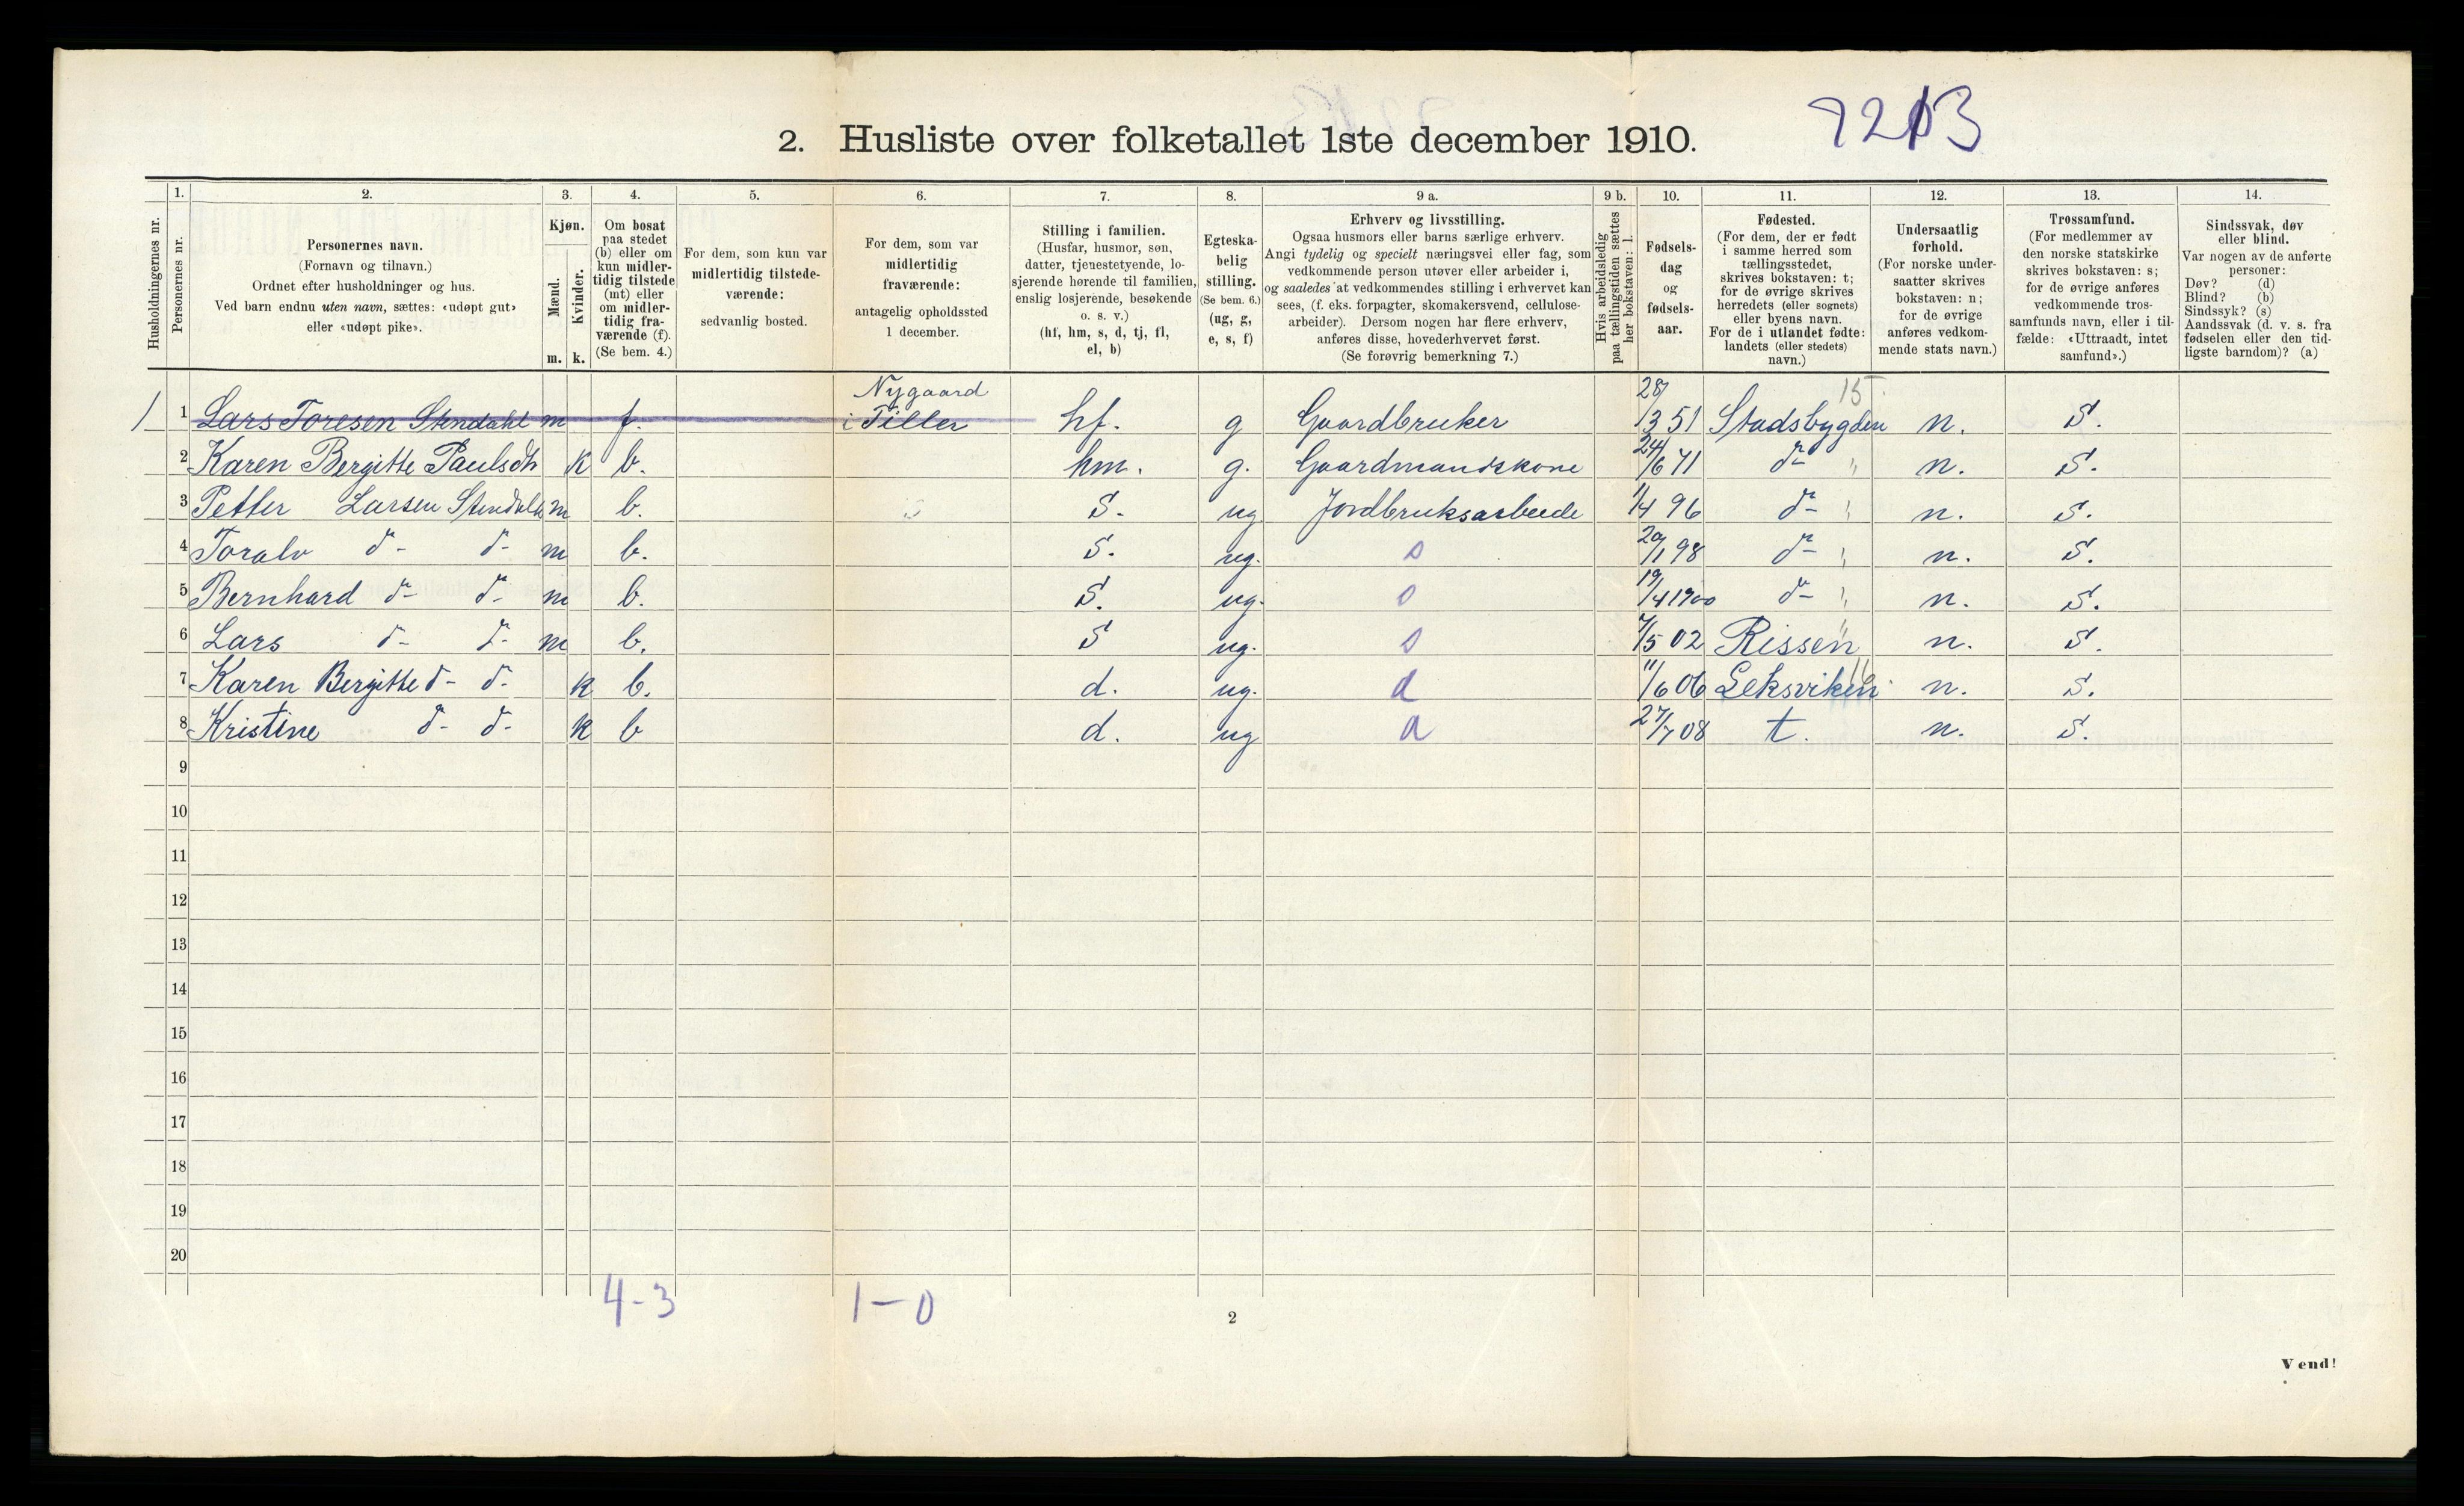 7213
2. Husliste over folketallet 1ste december 1910.
1. 2. 3. 4. 5. 6. 7. 8. 9 a. 9 b. 10. 11. 12. 13. 14.
Husholdningernes nr.
Personernes nr.
Personernes navn.
(Fornavn og tilnavn.)
Ordnet efter husholdninger og hus.
Ved barn endnu uten navn, sættes: «udøpt gut»
eller «udøpt pike».
Kjøn.
Mænd.
Kvinder.
m. k.
Om bosat
paa stedet
(b) eller om
kun midler-
tidig tilstede
(mt) eller
om midler-
tidig fra-
værende (f).
(Se bem. 4.)
For dem, som kun var
midlertidig tilstede-
værende:
sedvanlig bosted.
For dem, som var
midlertidig
fraværende:
antagelig opholdssted
1 december.
Stilling i familien.
(Husfar, husmor, søn,
datter, tjenestetyende, lo-
sjerende hørende til familien,
enslig losjerende, besøkende
o. s. v.)
(hf, hm, s, d, tj, fl,
el, b)
Egteska-
belig
stilling.
(Se bem. 6.)
(ug, g,
e, s, f)
Erhverv og livsstilling.
Ogsaa husmors eller barns særlige erhverv.
Angi tydelig og specielt næringsvei eller fag, som
vedkommende person utøver eller arbeider i,
og saaledes at vedkommendes stilling i erhvervet kan
sees, (f. eks. forpagter, skomakersvend, cellulose-
arbeider). Dersom nogen har flere erhverv,
anføres disse, hovederhvervet først.
(Se forøvrig bemerkning 7.)
Hvis arbeidsledig
paa tællingstiden sættes
her bokstaven: l.
Fødsels-
dag
og
fødsels-
aar.
Fødested.
(For dem, der er født
i samme herred som
tællingsstedet,
skrives bokstaven: t;
for de øvrige skrives
herredets (eller sognets)
eller byens navn.
For de i utlandet fødte:
landets (eller stedets)
navn.)
Undersaatlig
forhold.
(For norske under-
saatter skrives
bokstaven: n;
for de øvrige
anføres vedkom-
mende stats navn.)
Trossamfund.
(For medlemmer av
den norske statskirke
skrives bokstaven: s;
for de øvrige anføres
vedkommende tros-
samfunds navn, eller i til-
fælde: «Uttraadt, intet
samfund».)
Sindssvak, døv
eller blind.
Var nogen av de anførte
personer:
Døv? (d)
Blind? (b)
Sindssyk? (s)
Aandssvak (d. v. s. fra
fødselen eller den tid-
ligste barndom)? (a)
Nygaard 15
1 1 Lars Toresen Stendahl m f. i Tiller hf. g Gaardbruker 28/3 51 Stadsbygden n. S.
2 Karen Bergitte Paulsdt k b. hm. g. Gaardmandskone 24/6 71 do " n. S.
3 Petter Larsen Stendahl m b. S. ug Jordbruksarbeide 1/4 96 do " n. S.
4 Toralv do do m b. S. ug. s 20/1 98 do " n. S.
5 Bernhard do do m b. S. ug. s 19/4 1900 do " n. S.
6 Lars do do m b. S ug. s 7/5 02 Rissen " n. S.
7 Karen Bergitte do do k b. d. ug. d 11/6 06 Leksviken n. S.
8 Kristine do do k b d. ug d 27/7 08 t. n. S.
9
10
11
12
13
14
15
16
17
18
19
20
4-3 1-0
2
Vend!